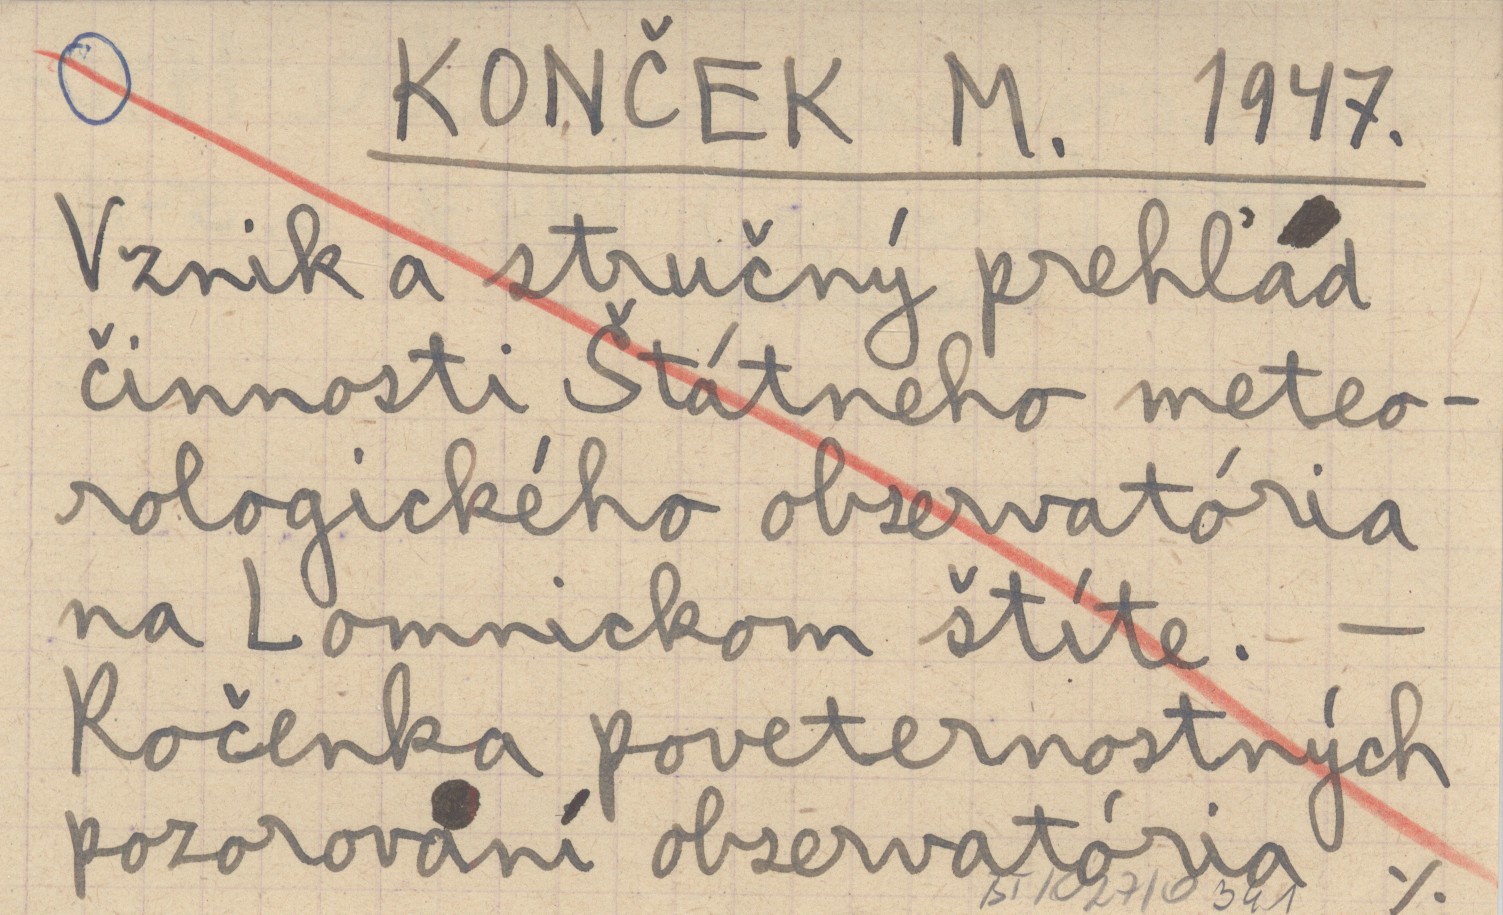 KONČEK M. 1947.
Vznik a stručný prehľad
činnosti Štátneho meteo-
rologického observatória
na Lomnickom štíte. —
Ročenka poveternostných
pozorovaní observatória ./.